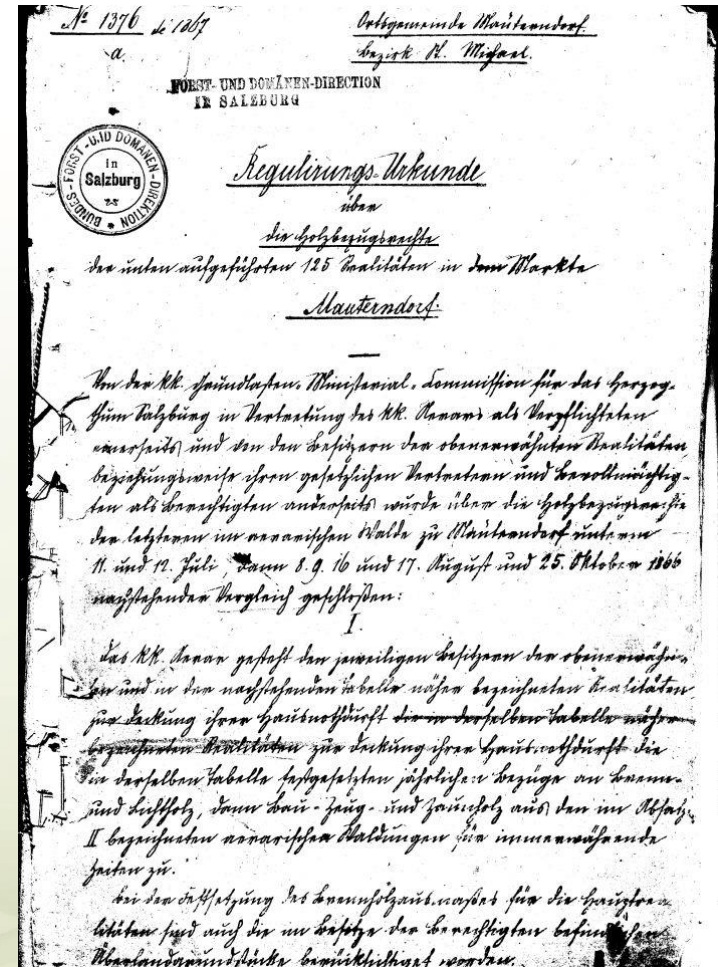 № 1376 de 1867
a.
Ortsgemeinde Mauterndorf.
Bezirk St. Michael.
FORST- UND DOMÄNEN-DIRECTION
IN SALZBURG
BUNDES-FORST-U.ND DOMÄNEN-DIREKTION
in
Salzburg
Regulirungs-Urkunde
über
die Holzbezugsrechte
der unten aufgeführten 125 Realitäten in dem Markte
Mauterndorf.
Von der kk. Grundlasten-Ministerial-Commission für das Herzog-
thum Salzburg in Vertretung des kk. Aerars als Verpflichteten
einerseits und von den Besitzern der obenerwähnten Realitäten
beziehungsweise ihren gesetzlichen Vertretern und Bevollmächtig-
ten als Berechtigten anderseits wurde über die Holzbezugsrechte
der letzteren im aerarischen Walde zu Mauterndorf unterm
11. und 12. Juli dann 8. 9. 16 und 17. August und 25. Oktober 1866
nachstehender Vergleich geschloßen:
I.
Das kk. Aerar gesteht den jeweiligen Besitzern der obenerwähn-
ten und in der nachstehenden Tabelle näher bezeichneten Realitäten
zur Deckung ihrer Hausnothdurft die in derselben Tabelle näher
bezeichneten Realitäten zur Deckung ihrer Hausnothdurft die
in derselben Tabelle festgesetzten jährlichen Bezüge an Brenn-
und Lichtholz, dann Bau- Zeug- und Zaunholz aus den im Absatz
II bezeichneten aerarischen Waldungen für immerwährende
Zeiten zu.
Bei der Festsetzung des Brennholzausmaßes für die Hauptrea-
litäten sind auch die im Besitze der Berechtigten befindlichen
Überlandgrundstücke berücksichtiget worden.